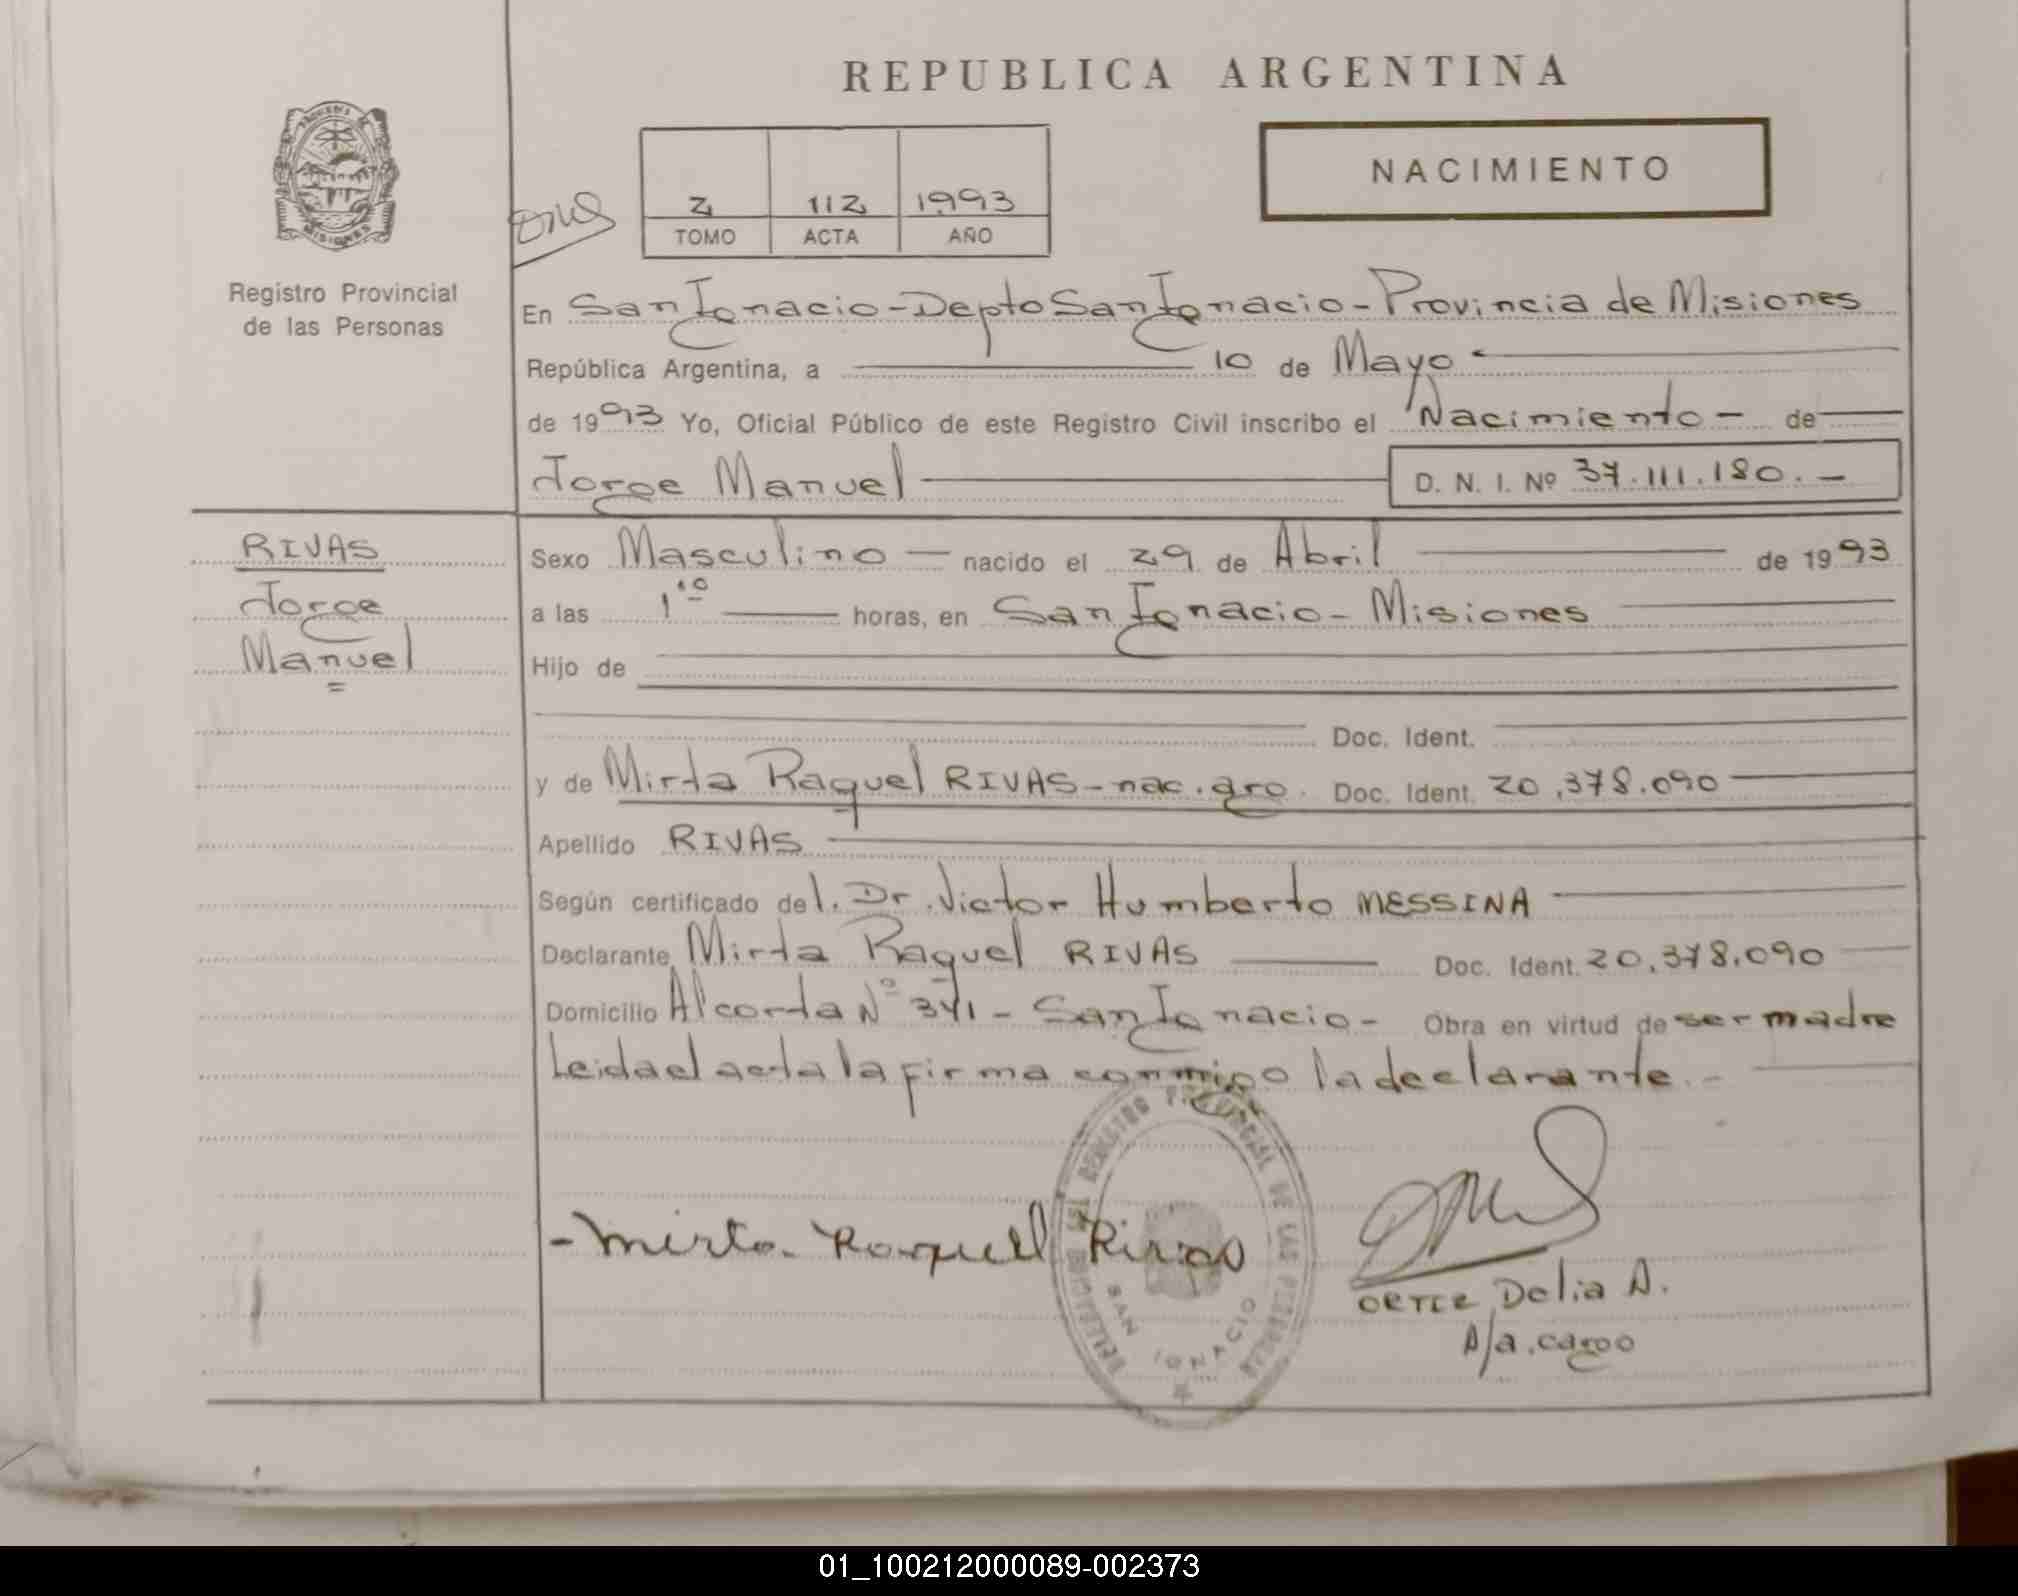 REPUBLICA ARGENTINA
NACIMIENTO
2 112 1993
TOMO ACTA AÑO
MISIONES
Registro Provincial
de las Personas
En San Ignacio - Depto San Ignacio - Provincia de Misiones
República Argentina, a 10 de Mayo
de 1993 Yo, Oficial Público de este Registro Civil inscribo el Nacimiento - de
Jorge Manuel D. N. I. Nº 37.111.180.-
RIVAS
Jorge
Manuel
Sexo Masculino - nacido el 29 de Abril de 1993
a las 1¹⁰ horas, en San Ignacio - Misiones
Hijo de
Doc. Ident.
y de Mirta Raquel RIVAS - nac. arg. Doc. Ident. 20.378.090
Apellido RIVAS
Según certificado del. Dr. Victor Humberto MESSINA
Declarante Mirta Raquel RIVAS Doc. Ident. 20.378.090
Domicilio Alcorta Nº 341 - San Ignacio - Obra en virtud de ser madre
Leida el acta la firma conmigo la declarante.-
DELEGACION DEL REGISTRO PROVINCIAL DE LAS PERSONAS
SAN IGNACIO
- Mirta Raquel Rivas
ORTIZ Delia A.
A/a. cargo
01_100212000089-002373